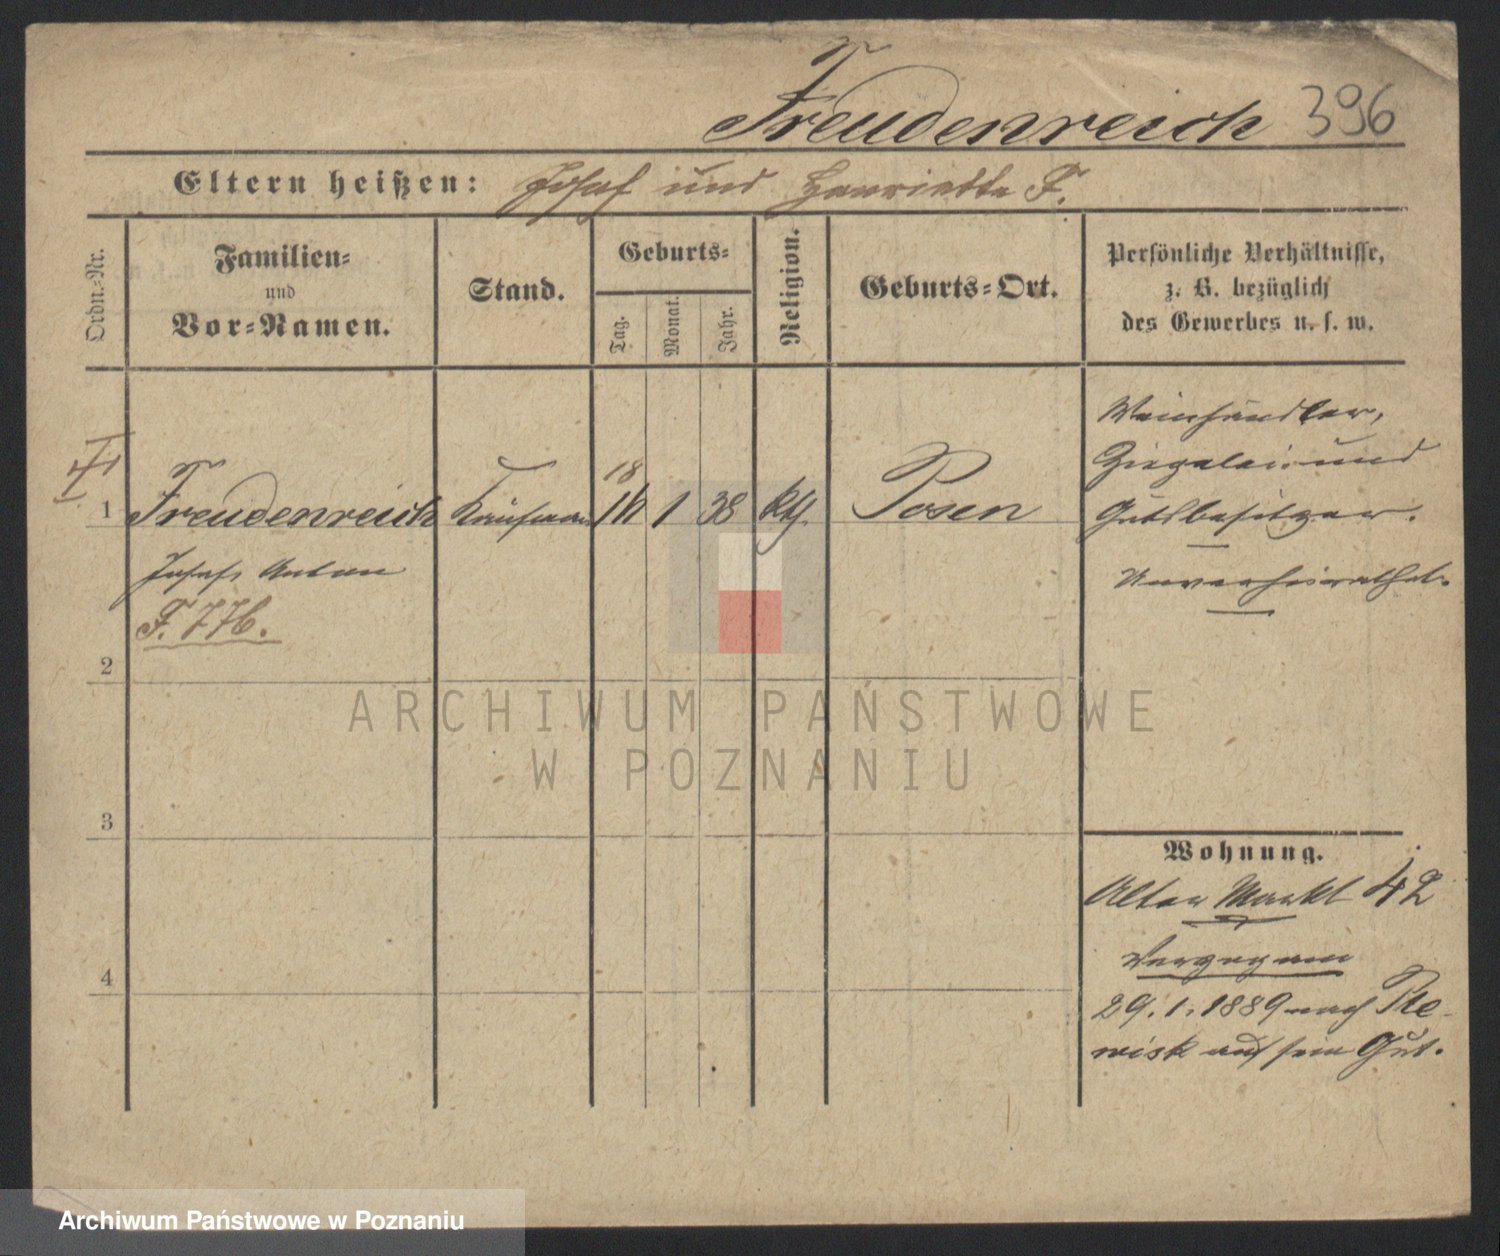 Freudenreich 396
Eltern heißen: Josef und Henriette F.
Ordn.-Nr.
Familien-
und
Vor-Namen.
Stand.
Geburts-
Tag.
Monat.
Jahr.
Religion.
Geburts-Ort.
Persönliche Verhältnisse,
z. B. bezüglich
des Gewerbes u. s. w.
1 Freudenreich Kaufmann 18 1 38 kth. Posen
Josef, Anton
F. 776.
Weinhändler,
Ziegelei- und
Gutsbesitzer.
Unverheirathet.
2
3
4
Wohnung.
Alter Markt 42
Verzogen
29. 1. 1889 nach Ple-
wisk auf sein Gut.
ARCHIWUM PAŃSTWOWE
W POZNANIU
Archiwum Państwowe w Poznaniu